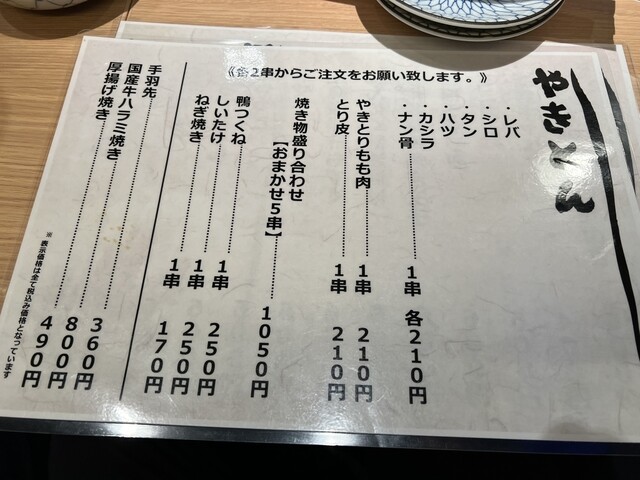 やきとん
《各2串からご注文をお願い致します。》
・レバ
・シロ
・タン
・ハツ
・カシラ
・ナン骨 1串 各210円
やきとりもも肉 1串 210円
とり皮 1串 210円
焼き物盛り合わせ
【おまかせ5串】 1050円
鴨つくね 1串 250円
しいたけ 1串 250円
ねぎ焼き 1串 170円
手羽先 360円
国産牛ハラミ焼き 800円
厚揚げ焼き 490円
※表示価格は全て税込み価格となっています